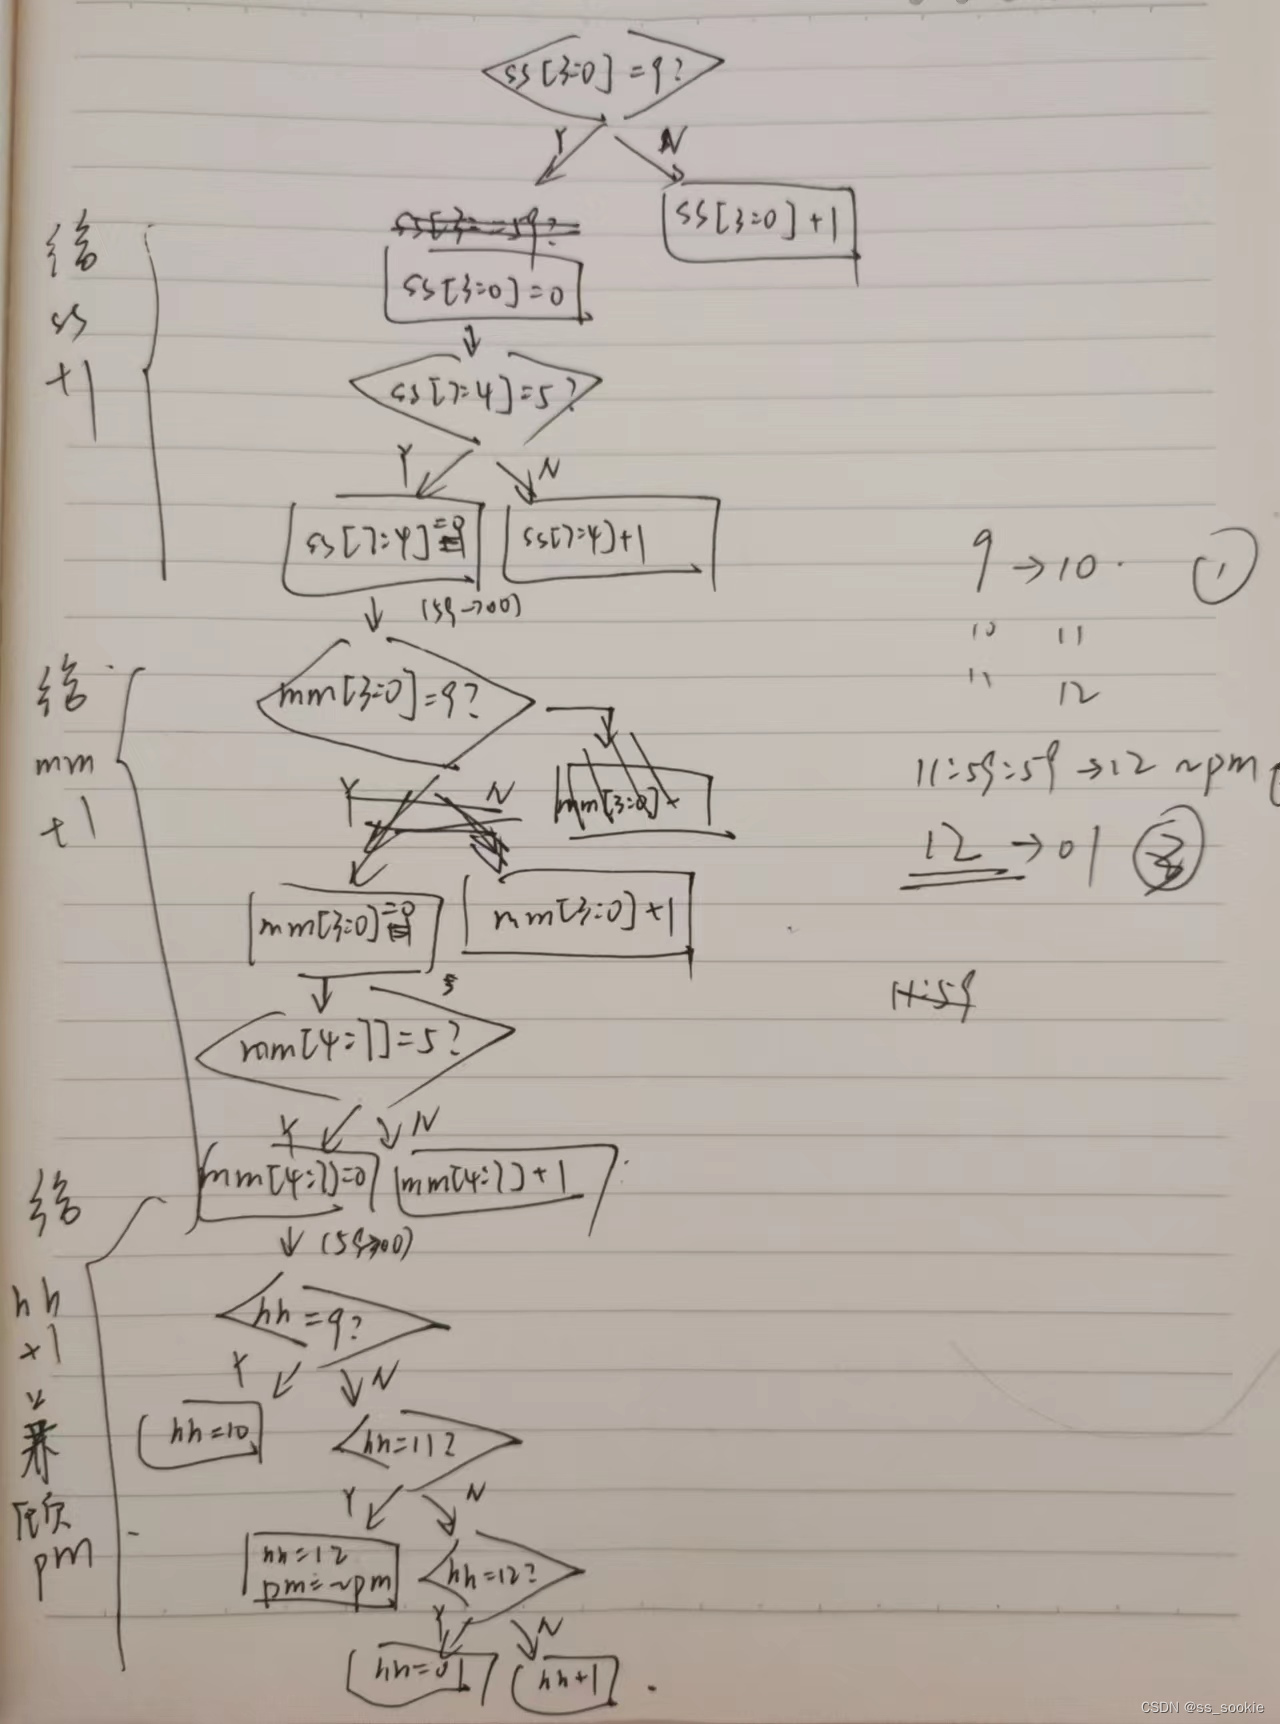 ss[3:0]=9?
Y N
ss[3:0]+1
ss[3:0]=0
给
ss
+1
ss[7:4]=5?
Y N
ss[7:4]=0
ss[7:4]+1
(59→00)
9→10 ①
10 11
11 12
给
mm
+1
mm[3:0]=9?
mm[3:0]+
Y N
11:59:59→12 ~pm
12→01
mm[3:0]=0
mm[3:0]+1
11:59
mm[4:7]=5?
Y N
mm[4:7]=0
mm[4:7]+1
(59→00)
给
hh
+1
pm
hh=9?
Y N
hh=10
hh=11?
Y N
hh=12
pm=~pm
hh=12?
Y N
hh=01
hh+1
CSDN @ss_sookie